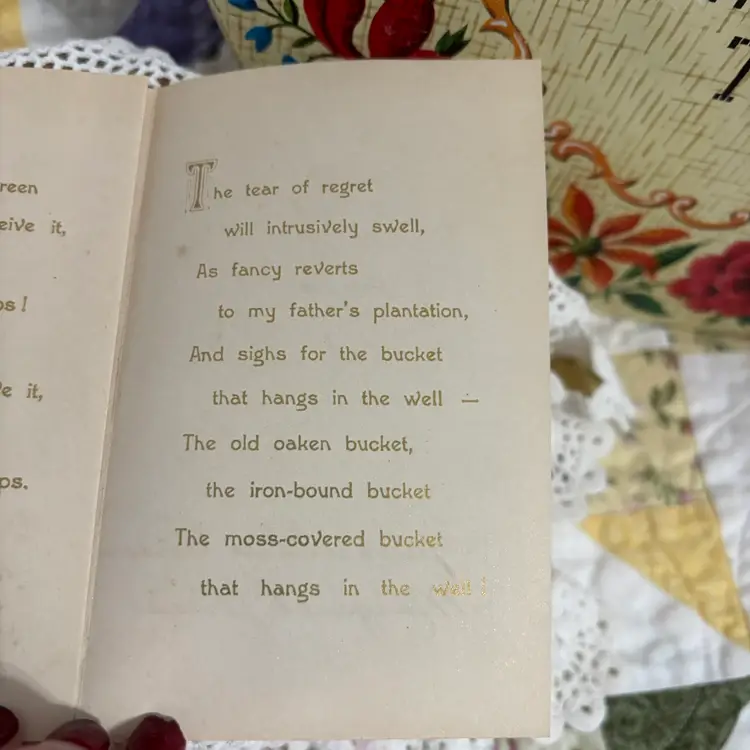 reen
eive it,
ps!
e it,
ps.
The tear of regret
will intrusively swell,
As fancy reverts
to my father's plantation,
And sighs for the bucket
that hangs in the well —
The old oaken bucket,
the iron-bound bucket
The moss-covered bucket
that hangs in the well!